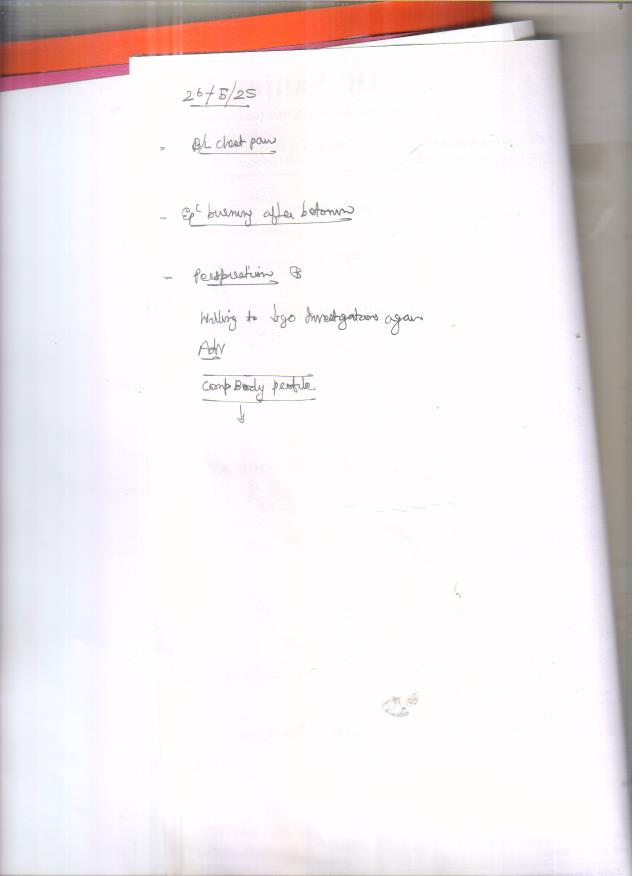 26/5/25
- B/L chest pain
- Ep^c burning after betonin
- Perspiration ⊕
Willing to ↓go Investigations again
Adv
Comp Body profile
↓